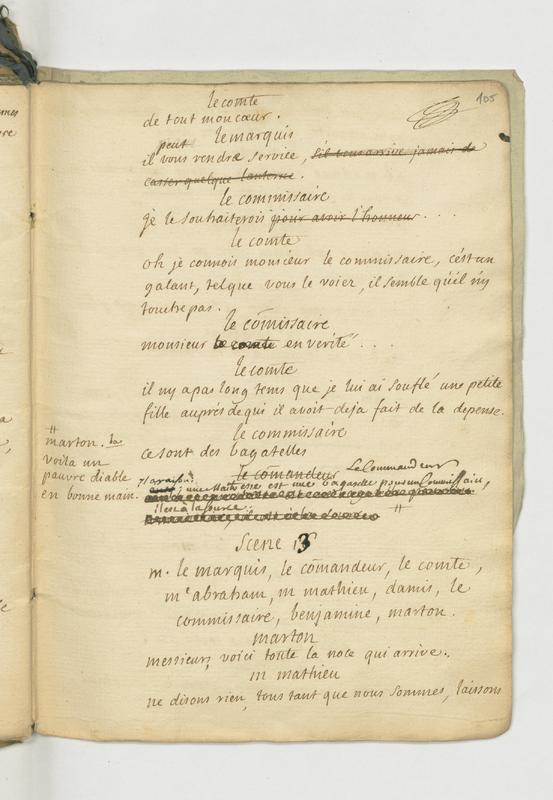 105
le comte
de tout mon cœur.
le marquis
peut
il vous rendre service, s'il vous arrive jamais de
casser quelque lanterne.
le commissaire
je le souhaiterois pour avoir l'honneur . . .
le comte
oh je connois monsieur le commissaire, c'ést un
galant, tel que vous le voiez, il semble qu'il n'ÿ
touche pas.
le cõmissaire
monsieur le comte en verité . . .
le comte
il ny a pas long tems que je lui ai souflé une petite
fille auprés de qui il avoit deja fait de la depense.
le commissaire
ce sont des bagatelles
marton. la
voila un
pauvre diable
en bonne main.
le cõmandeur Le Commandeur
il a raison; une Maitresse est une bagatelle pour un Commissaire,
il est à la source.
Scene 13
m. le marquis, le cõmandeur, le comte,
me abraham, m mathieu, damis, le
commissaire, benjamine, marton.
marton
messieurs, voici toute la noce qui arrive.
m mathieu
ne disons rien, tous tant que nous sommes, laissons